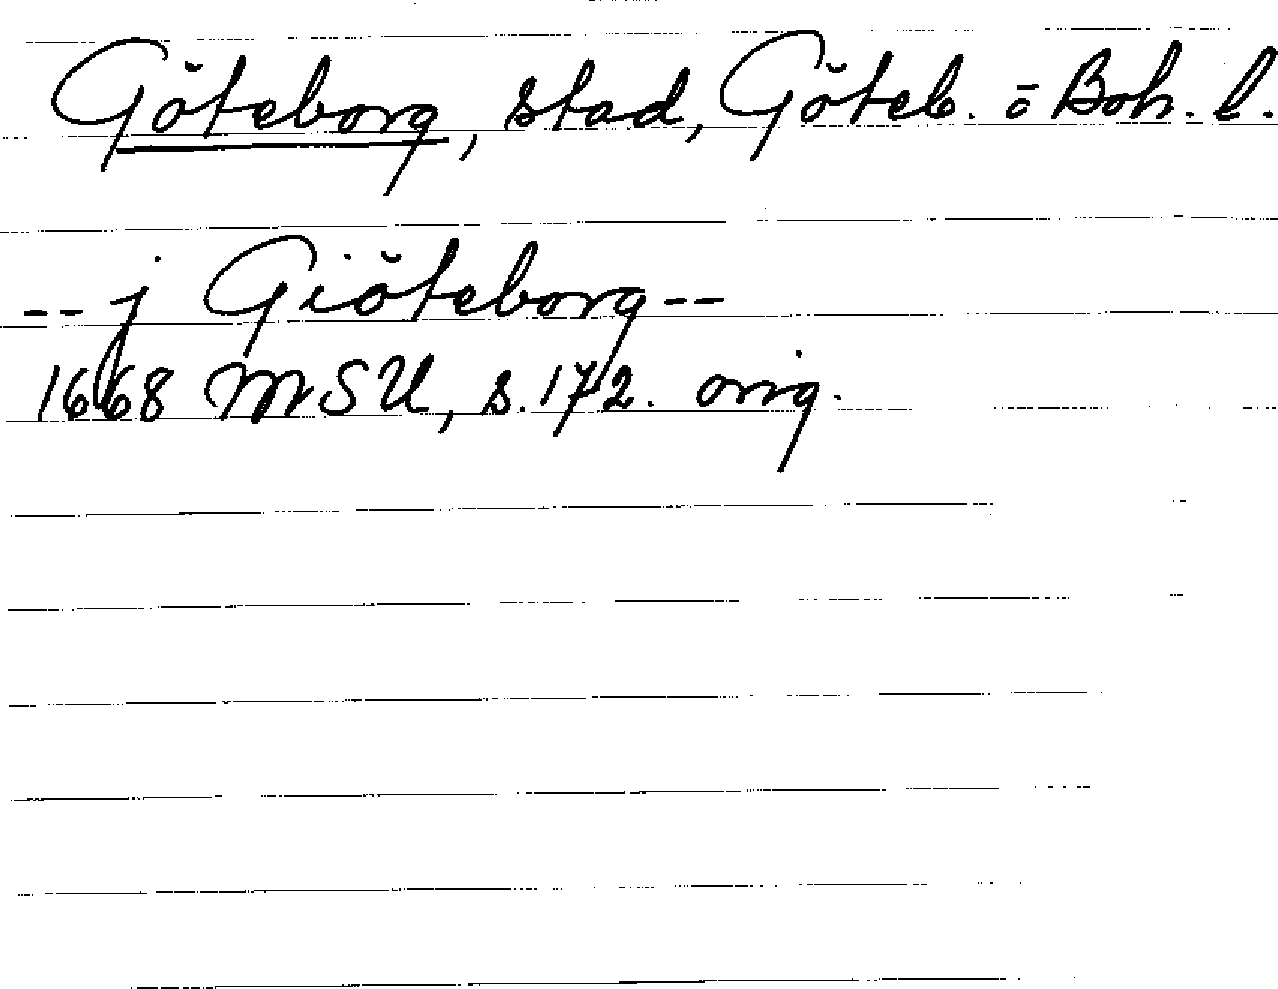 Göteborg, stad, Göteb. o Boh. l.
-- j Giöteborg --
1668 MSU, s. 172. orig.